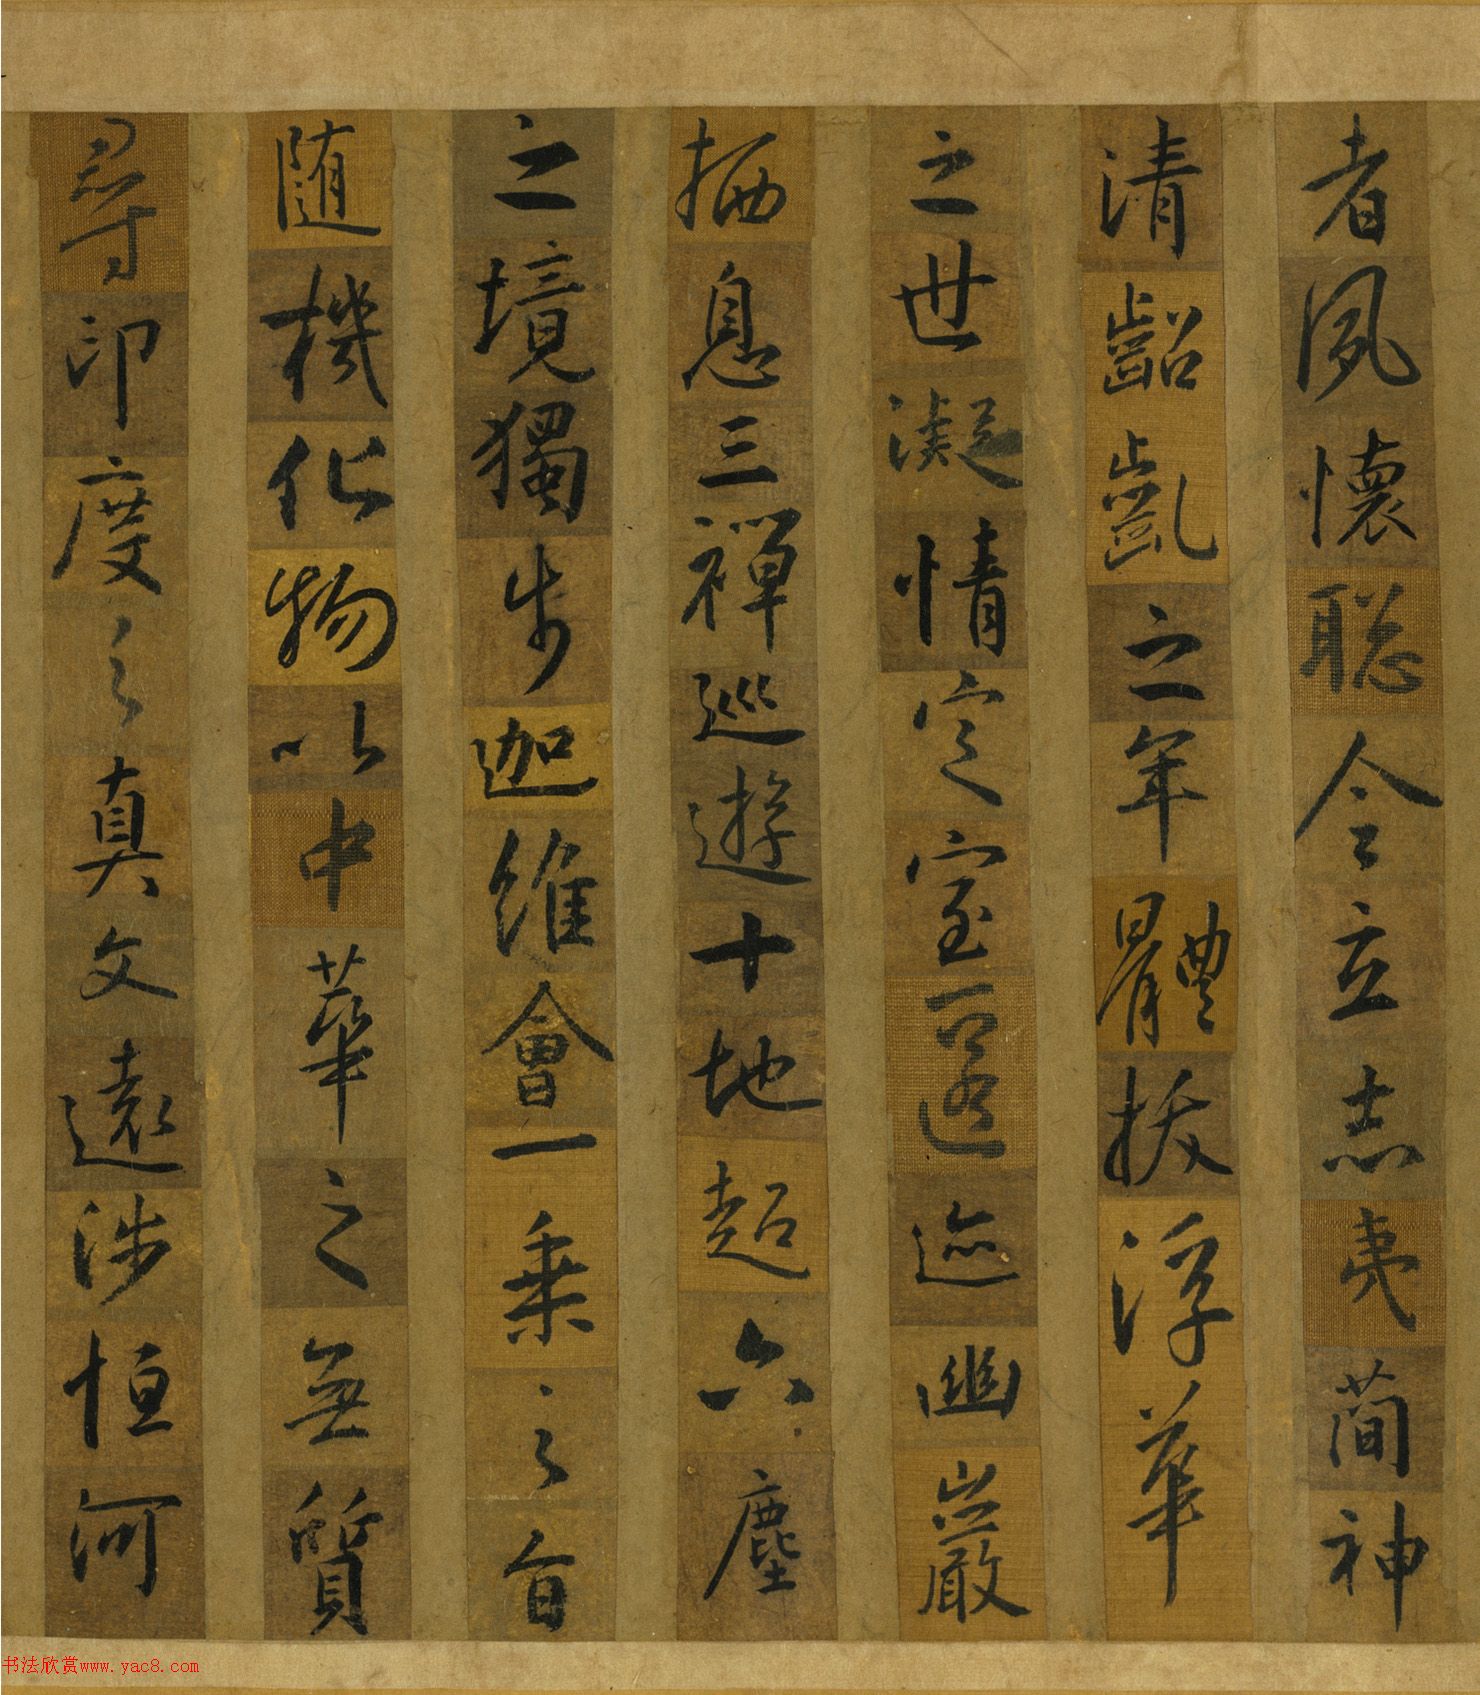 者夙懷聡令立志夷簡神
清齠齔之年體拔浮華
之世凝情定室匿迹幽巖
栖息三禪巡遊十地超六塵
之境獨步迦維會一乘之旨
随機化物以中華之無質
尋印度之真文遠涉恒河
书法欣赏www.yac8.com